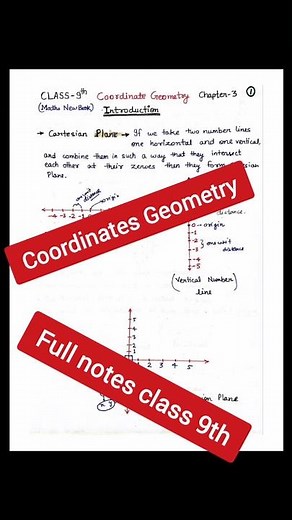 CLASS-9th Coordinate Geometry Chapter-3 1
(Maths New Book) Introduction
→ Cartesian Plane → If we take two number lines
one horizontal and one vertical,
and combine them in such a way that they intersect
each other at their zeroes then they form
Plane.
one unit
distance
origin
-4 -3 -2 -1
distance.
0 → origin
-1
-2
-3
-4
-5
one unit
distance
(Vertical Number
line)
Coordinates Geometry
5
4
3
2
1
1 2 3 4 5
Plane
x y
Full notes class 9th